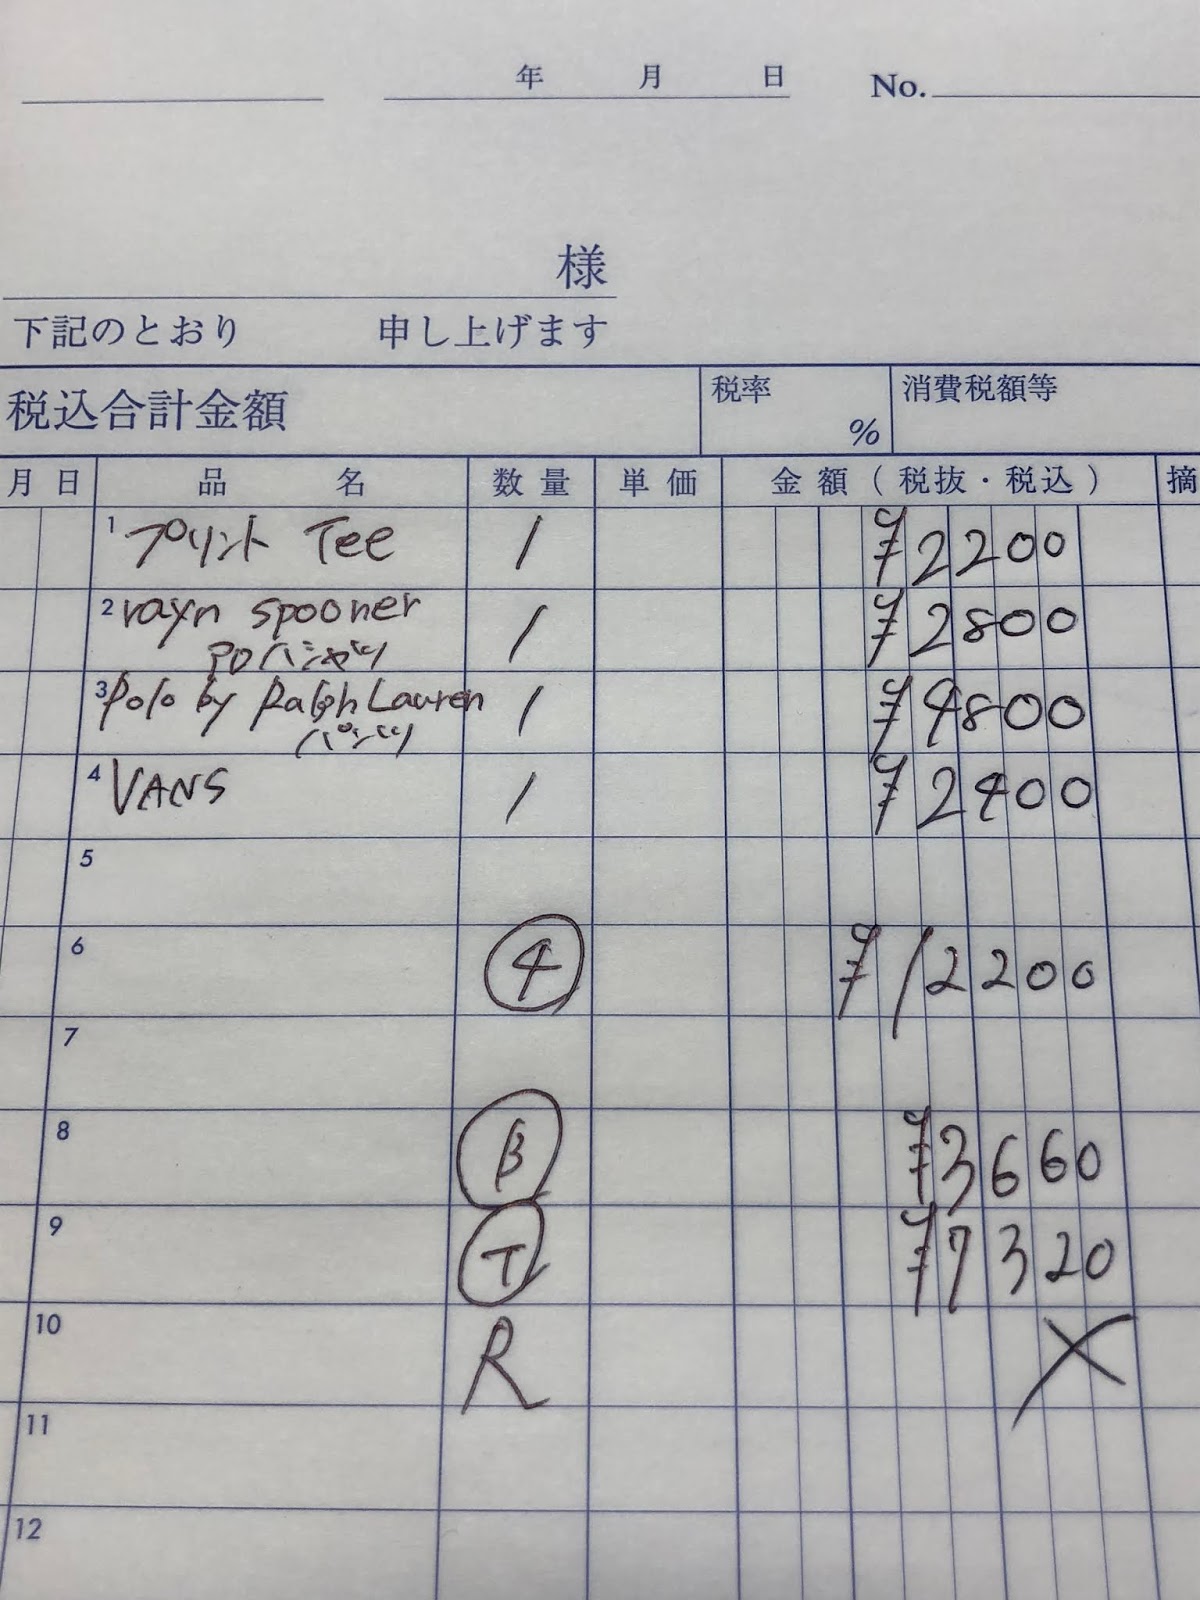 年 月 日 No.
様
下記のとおり 申し上げます
税込合計金額 税率 % 消費税額等
月 日 品 名 数 量 単 価 金 額 ( 税抜・税込 ) 摘
1 プリント Tee 1 ¥2200
2 rayn spooner 1 ¥2800
アロハシャツ
3 Polo by Ralph Lauren 1 ¥4800
パンツ
4 VANS 1 ¥2400
5
6 4 ¥12200
7
8 B ¥3660
9 T ¥7320
10 R X
11
12